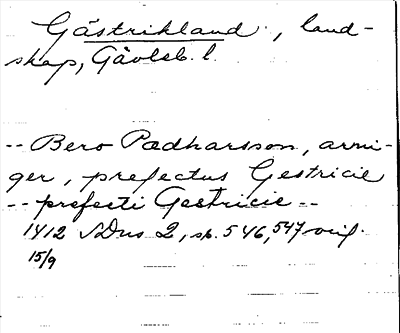 Gästrikland., land-
skap, Gävleb. l.
-- Bero Padharsson, armi-
ger, prefectus Gestricie
-- prefecti Gestricie --
1412 SDns 2, s. 546, 547 orig.
15/9